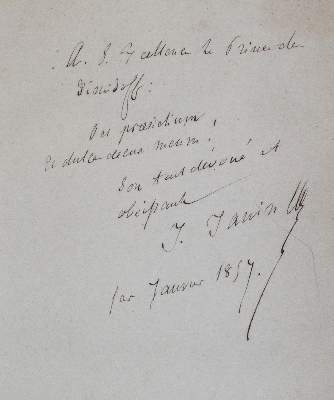 A. S. Excellence le Prince de
Demidoff:
præsidium
et dulce decus meum!
Son tout dévoué et
obéissant
J. Janin
1er Janvier 1857.